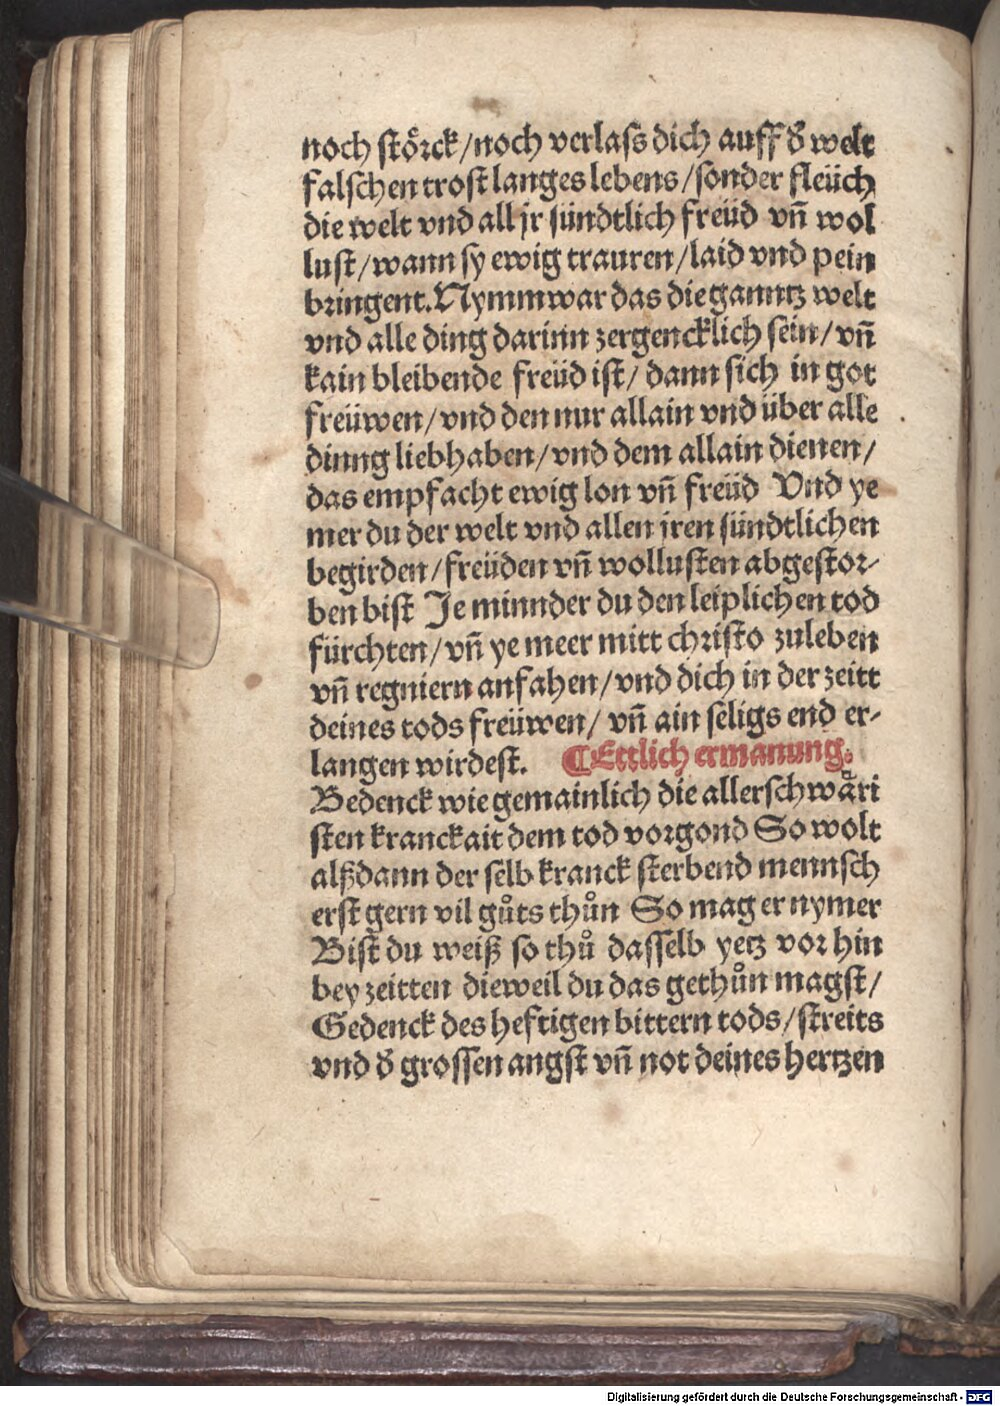 noch störck/noch verlass dich auff d̕ welt
falschen trost langes lebens/sonder fleüch
die welt vnd all jr sündtlich freüd vñ wol
lust/wann sy ewig trauren/laid vnd pein
bringent. Nymmwar das die ganntz welt
vnd alle ding darinn zergencklich sein/vñ
kain bleibende freüd ist/dann sich in got
freüwen/vnd den nur allain vnd über alle
dinng liebhaben/vnd dem allain dienen/
das empfacht ewig lon vñ freüd Vnd ye
mer du der welt vnd allen jren sündtlichen
begirden/freüden vñ wollusten abgestor-
ben bist Je minnder du den leiplichen tod
fürchten/vñ ye meer mitt christo zuleben
vñ regniern anfahen/vnd dich in der zeitt
deines tods freüwen/vñ ain seligs end er-
langen wirdest. ¶Ettlich ermanung.
Bedenck wie gemainlich die allerschwåri
sten kranckait dem tod vorgond So wolt
alßdann der selb kranck sterbend mennsch
erst gern vil gůts thůn So mag er nymer
Bist du weiß so thů dasselb yetz vor hin
bey zeitten dieweil du das gethůn magst/
Gedenck des heftigen bittern tods/streits
vnd d̕ grossen angst vñ not deines hertzen
Digitalisierung gefördert durch die Deutsche Forschungsgemeinschaft - DFG